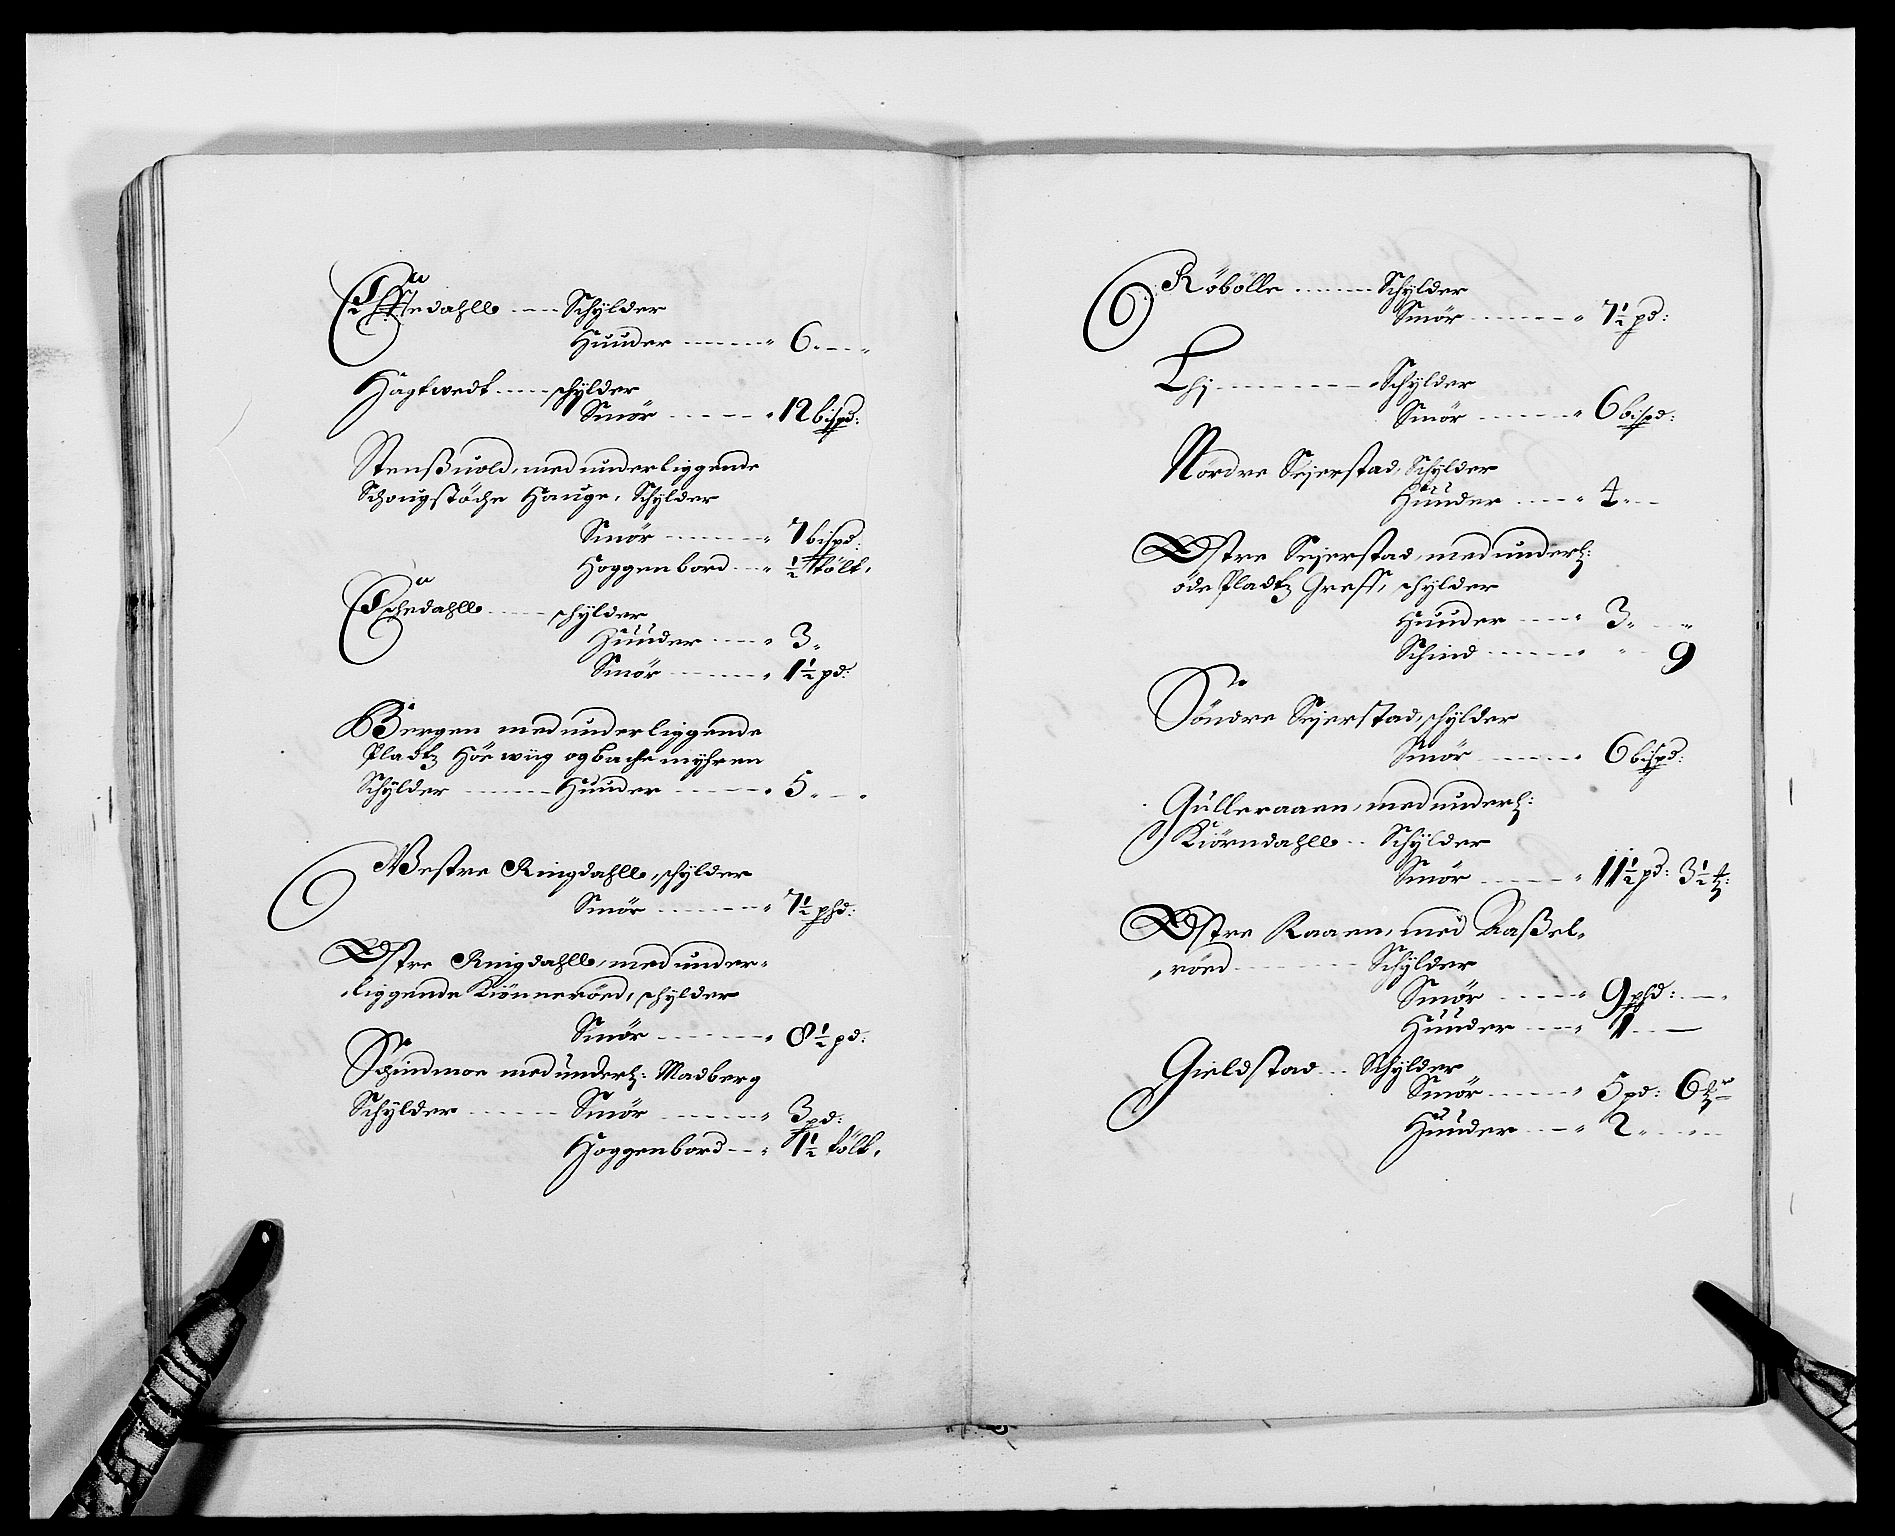 Schylder
Huuder 6
Hagtvedt schylder
Smør 12 bispd:
Stenßuold, med underliggende
Schougstöche Hauge, Schylder
Smør 7 bispd:
Hoggenbord ½ tølt,
schylder
Huuder 3
Smør 1½ pd:
Bergen med underliggende
Pladtz Hörwiig og bache myhren
Schylder Huuder 5
Westre Ringdahll, schylder
Smør 7½ phd:
Østre Ringdahll, med under-
liggende Kiönneröed, schylder
Smør 8½ pd:
Schindmoe med underl: Madberg
Schylder Smør 3 pd:
Hoggenbord 1½ tølt,
Röbölle Schylder
Smør 7½ pd:
Lhj Schylder
Smør 6 bispd:
Nordre Sejerstad, Schylder
Huuder 4
Østre Sejerstad, med underl:
öde Pladtz Greff, schylder
Huuder 3
Schind 9
Söndre Sejerstad, schylder
Smør 6 bispd:
Gulleraaen, med underl:
Kiörndahll Schylder
Smør 11½ pd: 3½
Østre Raaen, med Aaßel-
röed Schylder
Smør 9 phd:
Huuder 1
Gieldstad Schylder
Smør 5 pd: 6
Huuder 2